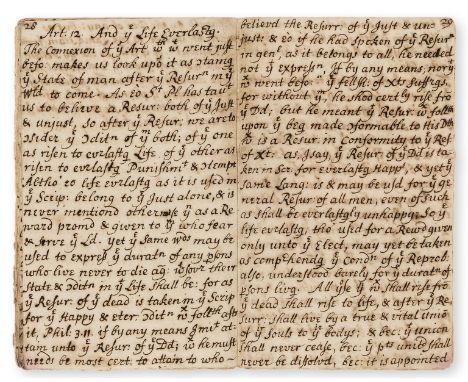 28
Art. 12. And yͤ Life Everlastg.
The Connexion of yͤ Art wͭʰ wͭ went just
befo. makes us look upo it as Ηtaing
yͤ State of man after yͤ Resurⁿ in yͤ
Wld to come. As so Sᵗ Pl has tau
us to believe a Resur: both of yͤ Just
& unjust. so after yͤ Resur. we are to
of yͤ both, of yͤ one
as risen to everlastg Life, of yͤ other as
risen to everlastg Punishmᵗ &
Altho' life evrlastg as it is used in
yͤ Scrip: belong to yͤ Just alone, & is
never mentiond otherwise yⁿ as a Re
ward promd & given to yᵐ who fear
& serve yͤ Ld. yet yͤ same wds may be
used to express yͤ duratⁿ of any psons
who live never to die ag:
State & in yͤ Life shall be: for as
yͤ Resur. of yͤ dead is taken in yͤ Scrip
for yͤ Happy & eter:
it, Phil: 3.11. if by any means I mᵗ at-
tain unto yͤ Resur: of yͤ Dd; wͨ he must
needs be most cert. to attain to who-
29
believd the Resurr. of yͤ Just & un-
just: & so if he had spoken of yͤ Resurⁿ
in genˡ, as it belongs to all, he needed
not yͤ expresⁿ, If by any means, nor yͭ
wͨ went befo: yͤ fellosp. of Xᵗˢ suffrgs,
for without yᵐ, he shod certly rise fro
yͤ Dd, but he meant yͤ Resur. wͨ follows
upon yͤ beg made to his Dth
is a Resur. in Conformity to yͤ Resr
of Xᵗ. as, I say, yͤ Resur. of yͤ Dd is ta-
ken in Scr. for everlastg Happˢ, & yet yͤ
same Lang: is & may be usd for yͤ ge
neral Resur of all men, even of such
as shall be everlastgly unhappy; So yͤ
life evrlastg, tho' usd for a Reward given
only unto yͤ Elect, may yet be taken
as comphendg yͤ Condⁿ of yͤ Reprob.
also, understood barely for yͤ duratⁿ of
psons livg. All yⁿ yͭ shall rise fro
yͤ dead shall rise to life, & after yͤ Re-
surr: shall live by a true & vital unio
of yͤ souls to yͤ bodys: & bec: yͭ union
shall never cease, bec: yͤ pts united shall
never be dissolvd, bec: it is appointed